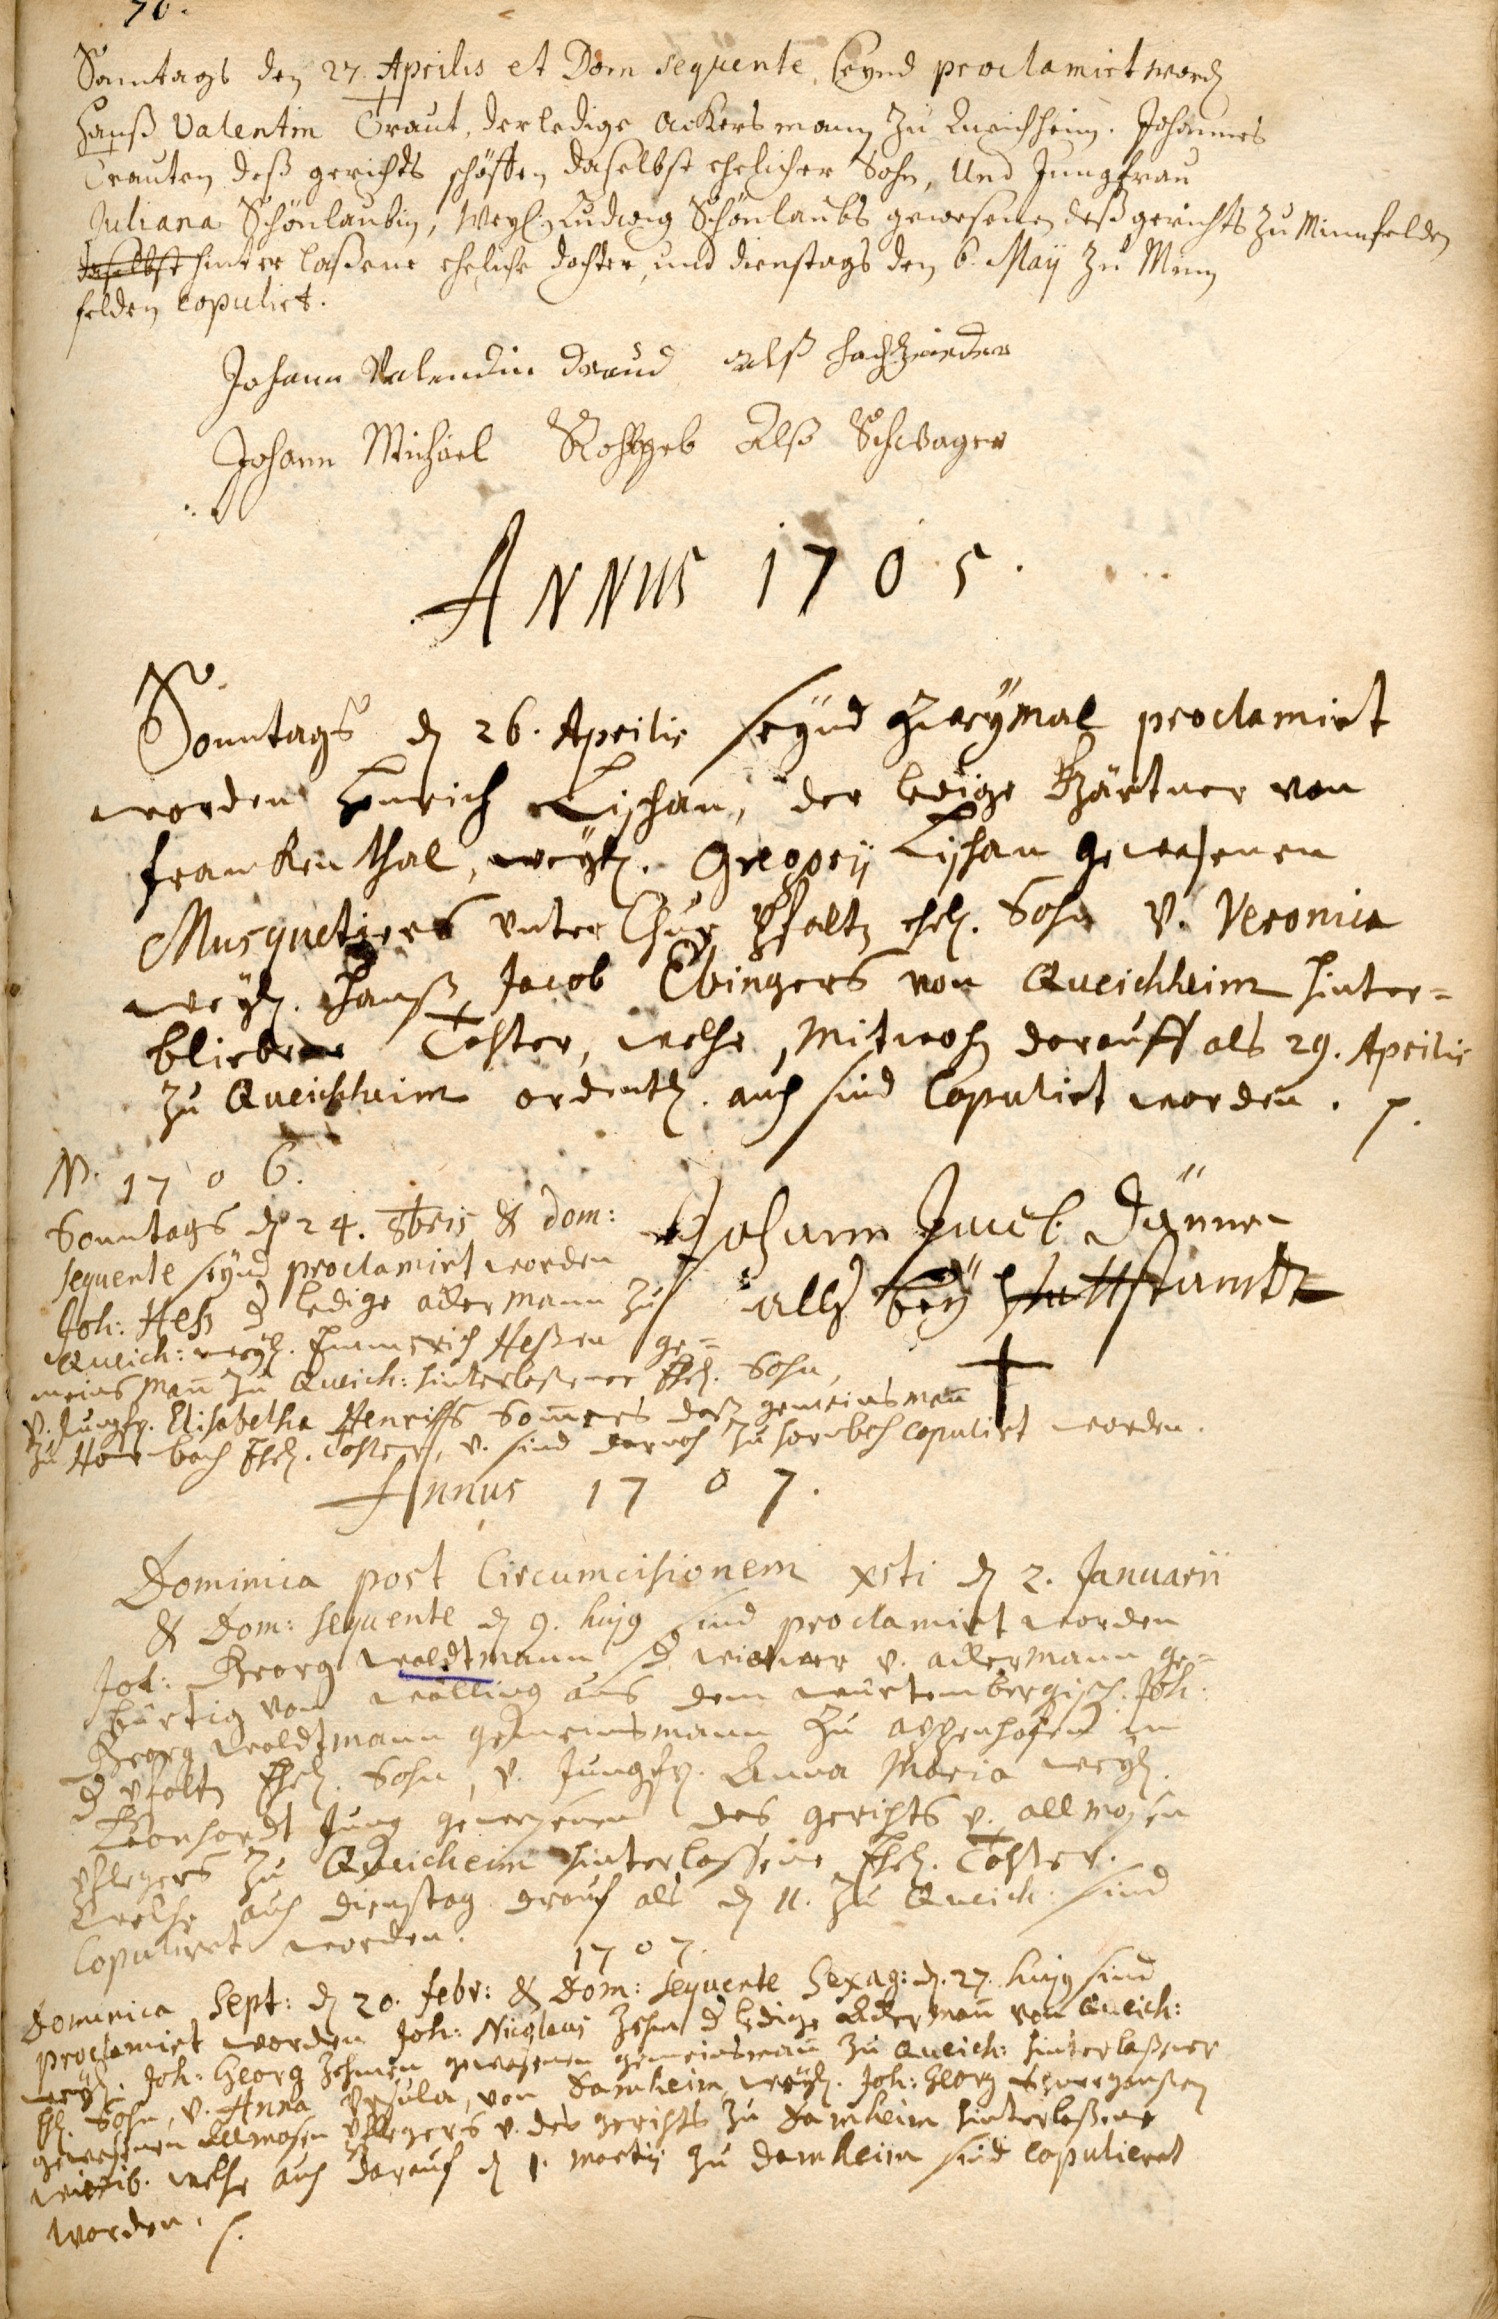 70.
Sontags den 27. Aprilis et Dom sequente, seynd proclamirt word
Hanß Valentin Traut, der ledige Ackersmann zu Queichheim. Johannes
Trauten deß gerichts schöffen daselbst ehelicher Sohn, Und Jungfrau
Juliana Schönlaubin, Weyl. Ludwig Schönlaubs gewesenen deß gerichts zu Minnfelden
daselbst hinter laßene eheliche dochter, und dienstags den 6. Maÿ zu Minn
felden copulirt.
Johann Valendin draud alß hochzeieder
Johann Michael alß Schwager
Annus 1705.
Sonntags d 26. Aprilis seÿnd zweÿmal proclamirt
worden Henrich Lischan, der ledige Gärtner von
Frankenthal, weÿl. Gregorij Lischan gewesenen
Musquetiers unter Chur Pfaltz ehl. Sohn v. Veronica
weÿl. Hanß Jacob Ebingers von Queichheim hinter=
bliebene Tochter, welche, Mitwoch darauff als 29. Aprilis
zu Queichheim ordentl. auch sind Copulirt worden.
1706.
Sonntags d 24. 8bris & dom:
sequente seÿnd proclamirt worden
Joh: Hess d ledige ackermann zu
Queich: weÿl. Emmerich Heßen ge=
meinsmañ zu Queich: hinterlaßener Ehel. Sohn,
v. Jungfr. Elisabetha Henrichs Som̃ers daß gemeinsmañ
zu Hornbach Ehel. Tochter, v. sind darnach zu hornbch copulirt worden.
Johann Jacob Dänner
alß beÿ
Annus 1707.
Dominica post Circumcisionem xsti d 2. Januarii
& Dom: sequente d 9. hujg sind proclamirt worden
Joh: Georg Woldtmann d witwer v. ackermann ge=
bürtig von Wölling aus dem Würtembergisch. Joh:
Georg Woldtmann gemeinsmann zu Appenhofen in
d Pfaltz Ehel. Sohn, v. Jungfr. Anna Maria weyl.
Leonhardt Jung gewesenen des gerichts v. allmosen
pflegers zu Queicheim hinterlassene Ehel. Tochter.
Welche auch dienstag drauf als d 11. zu Queich: sind
Copuliret worden.
1707.
Dominica Sept: d 20. febr: & Dom: sequente Sexag: d. 27. hujg sind
proclamirt worden Joh: Nicolaus Zehn d ledige Ackermañ von Queich:
weÿl. Joh: Georg Zehnen gewesenen gemeinsmañ zu Queich: hinterlaßner
Ehl. Sohn, v. Anna Ursula, von Damheim, weÿl. Joh: Georg
gewesenen Allmosen Pflegers v. des gerichts zu Damheim hinterlaßene
wittib. welche auch darauf d 1. Martij zu Damheim sind copulieret
worden.